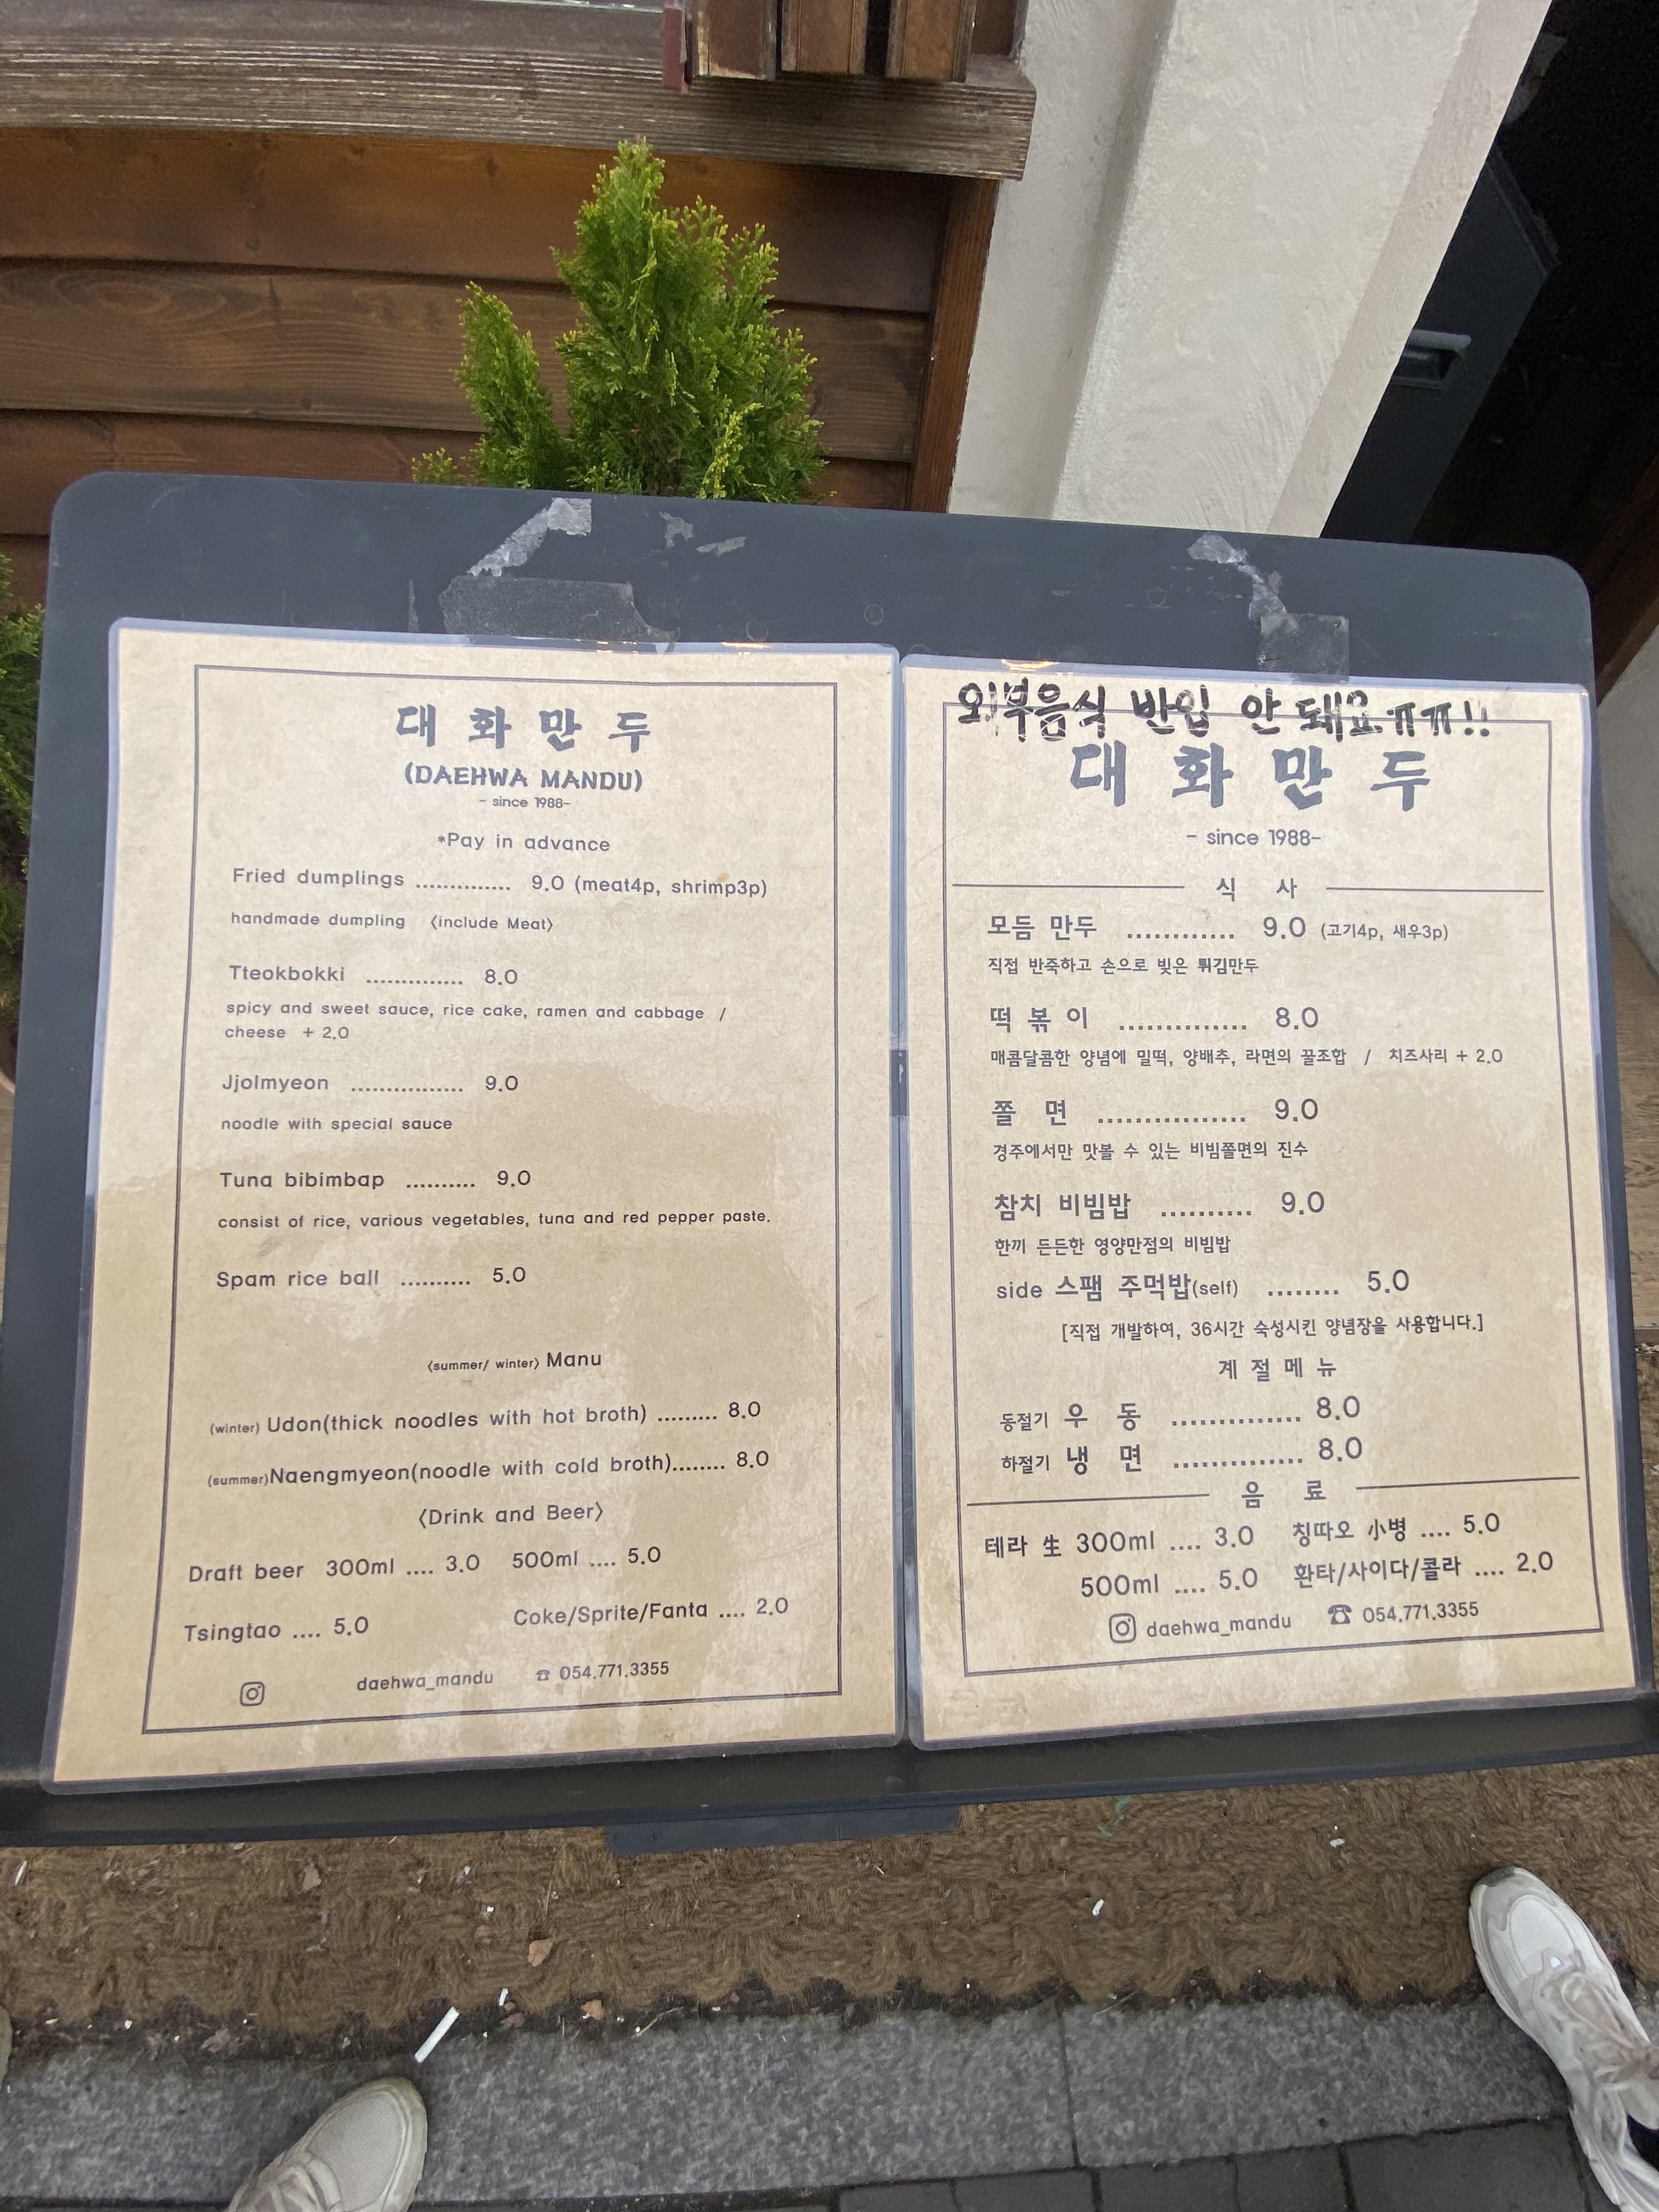 대화만두
(DAEHWA MANDU)
- since 1988-
*Pay in advance
Fried dumplings .............. 9.0 (meat4p, shrimp3p)
handmade dumpling 〈include Meat〉
Tteokbokki .............. 8.0
spicy and sweet sauce, rice cake, ramen and cabbage /
cheese + 2.0
Jjolmyeon ................ 9.0
noodle with special sauce
Tuna bibimbap .......... 9.0
consist of rice, various vegetables, tuna and red pepper paste.
Spam rice ball .......... 5.0
〈summer/ winter〉 Manu
(winter) Udon(thick noodles with hot broth) ......... 8.0
(summer)Naengmyeon(noodle with cold broth)........ 8.0
〈Drink and Beer〉
Draft beer 300ml .... 3.0 500ml .... 5.0
Tsingtao .... 5.0 Coke/Sprite/Fanta .... 2.0
daehwa_mandu ☎ 054.771.3355
외부음식 반입 안 돼요ㅠㅠ!!
대화만두
- since 1988-
식 사
모듬 만두 ............ 9.0 (고기4p, 새우3p)
직접 반죽하고 손으로 빚은 튀김만두
떡 볶 이 .............. 8.0
매콤달콤한 양념에 밀떡, 양배추, 라면의 꿀조합 / 치즈사리 + 2.0
쫄 면 ................ 9.0
경주에서만 맛볼 수 있는 비빔쫄면의 진수
참치 비빔밥 .......... 9.0
한끼 든든한 영양만점의 비빔밥
side 스팸 주먹밥(self) ........ 5.0
[직접 개발하여, 36시간 숙성시킨 양념장을 사용합니다.]
계절메뉴
동절기 우 동 .............. 8.0
하절기 냉 면 .............. 8.0
음 료
테라 生 300ml .... 3.0 칭따오 小병 .... 5.0
500ml .... 5.0 환타/사이다/콜라 .... 2.0
daehwa_mandu ☎ 054.771.3355